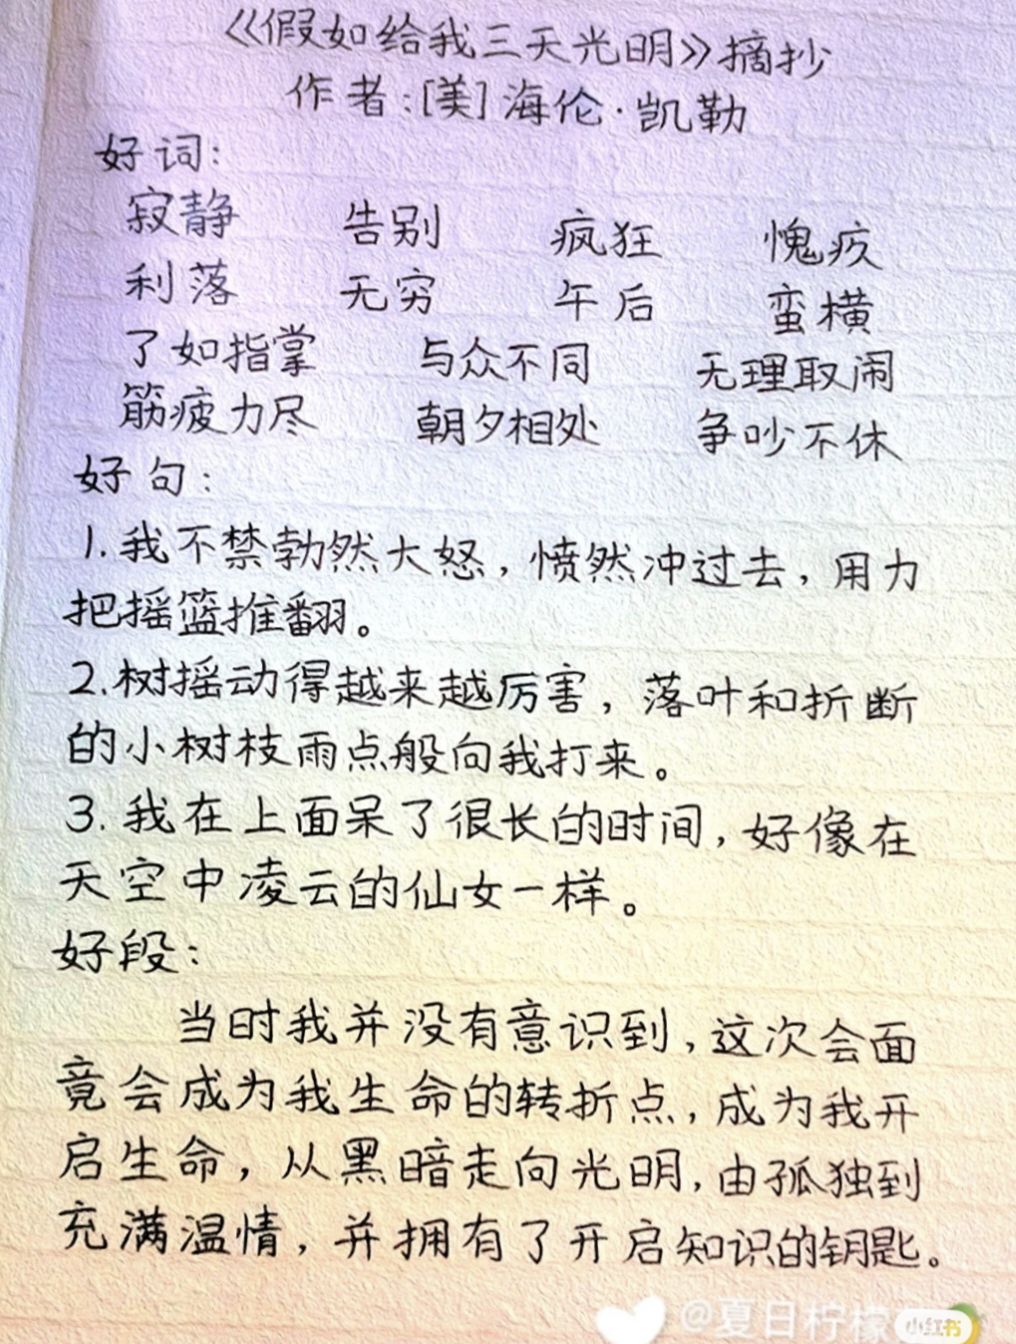 《假如给我三天光明》摘抄
作者:[美]海伦·凯勒
好词:
寂静 告别 疯狂 愧疚
利落 无穷 午后 蛮横
了如指掌 与众不同 无理取闹
筋疲力尽 朝夕相处 争吵不休
好句:
1.我不禁勃然大怒,愤然冲过去,用力
把摇篮推翻。
2.树摇动得越来越厉害,落叶和折断
的小树枝雨点般向我打来。
3.我在上面呆了很长的时间,好像在
天空中凌云的仙女一样。
好段:
当时我并没有意识到,这次会面
竟会成为我生命的转折点,成为我开
启生命,从黑暗走向光明,由孤独到
充满温情,并拥有了开启知识的钥匙。
@夏日柠檬
小红书